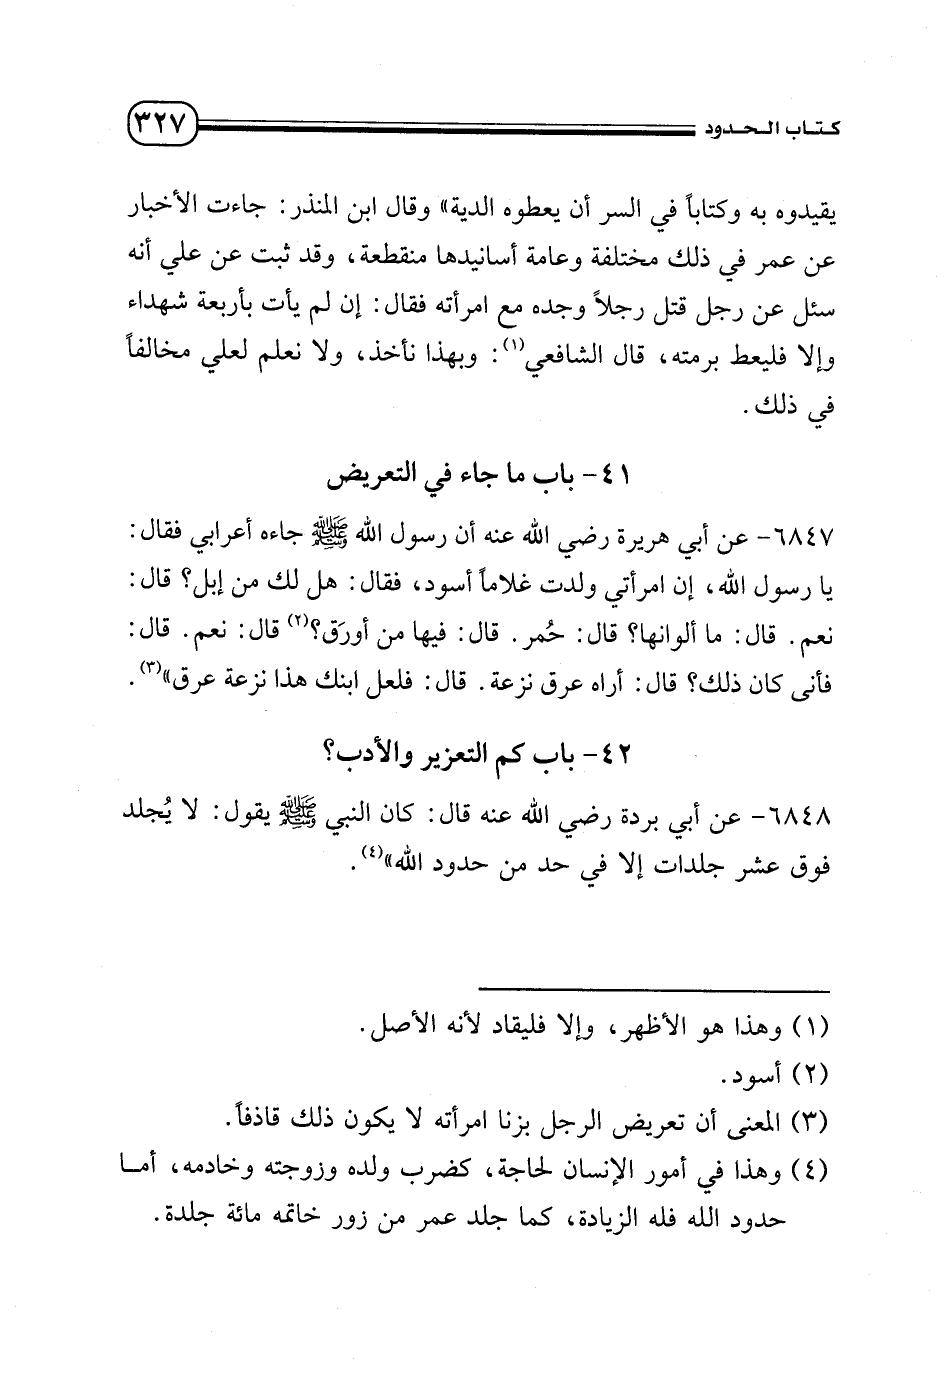 كتاب الحدود ٣٢٧
يقيدوه به وكتاباً في السر أن يعطوه الدية» وقال ابن المنذر: جاءت الأخبار
عن عمر في ذلك مختلفة وعامة أسانيدها منقطعة، وقد ثبت عن علي أنه
سئل عن رجل قتل رجلاً وجده مع امرأته فقال: إن لم يأت بأربعة شهداء
وإلا فليعط برمته، قال الشافعي(١): وبهذا نأخذ، ولا نعلم لعلي مخالفاً
في ذلك.
٤١- باب ما جاء في التعريض
٦٨٤٧- عن أبي هريرة رضي الله عنه أن رسول الله ﷺ جاءه أعرابي فقال:
يا رسول الله، إن امرأتي ولدت غلاماً أسود، فقال: هل لك من إبل؟ قال:
نعم. قال: ما ألوانها؟ قال: حُمر. قال: فيها من أورَق؟(٢) قال: نعم. قال:
فأنى كان ذلك؟ قال: أراه عرق نزعة. قال: فلعل ابنك هذا نزعة عرق»(٣).
٤٢- باب كم التعزير والأدب؟
٦٨٤٨- عن أبي بردة رضي الله عنه قال: كان النبي ﷺ يقول: لا يُجلد
فوق عشر جلدات إلا في حد من حدود الله»(٤).
(١) وهذا هو الأظهر، وإلا فليقاد لأنه الأصل.
(٢) أسود.
(٣) المعنى أن تعريض الرجل بزنا امرأته لا يكون ذلك قاذفاً.
(٤) وهذا في أمور الإنسان لحاجة، كضرب ولده وزوجته وخادمه، أما
حدود الله فله الزيادة، كما جلد عمر من زور خاتمه مائة جلدة.